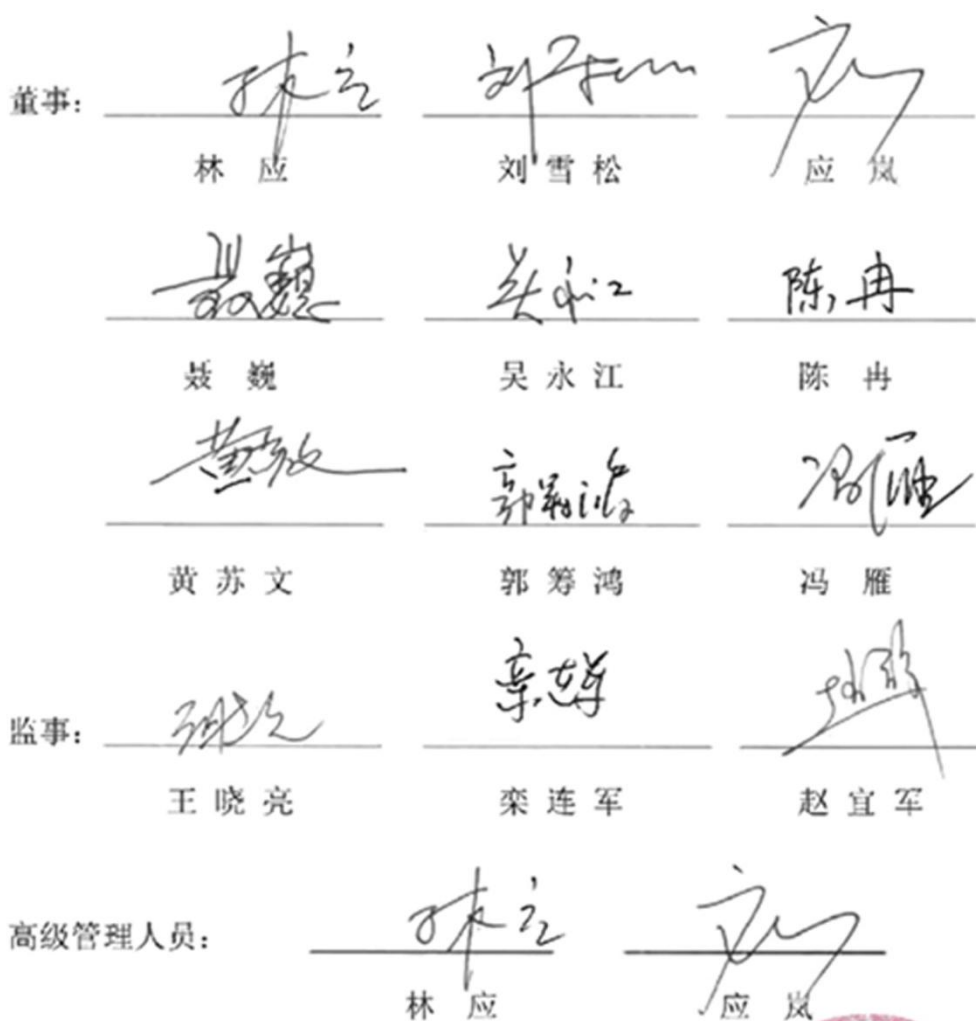 董事:
林应 刘雪松 应岚
聂巍 吴永江 陈冉
聂巍 吴永江 陈冉
黄苏文 郭筹鸿 冯雁
监事:
王晓亮 栾连军 赵宜军
高级管理人员:
林应 应岚